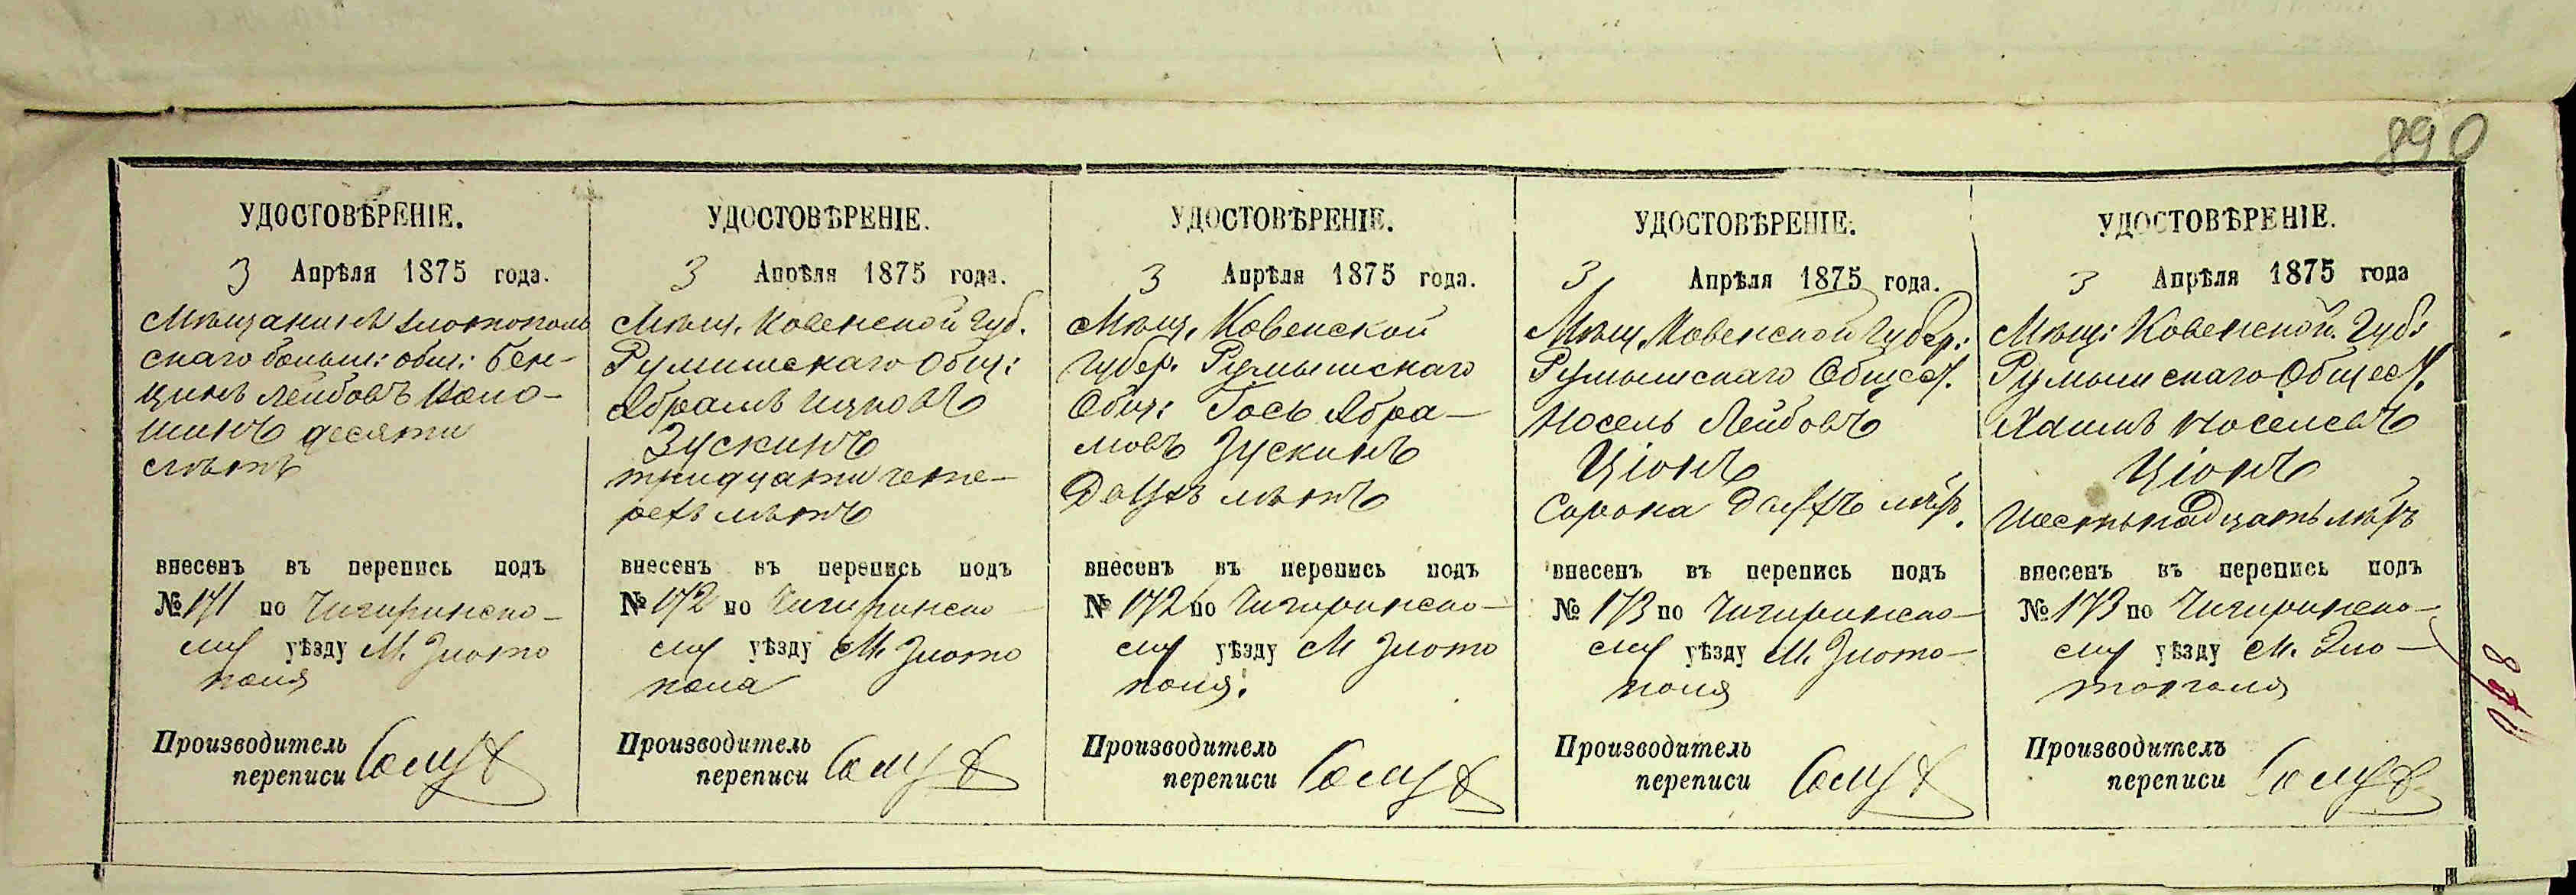 890
УДОСТОВѢРЕНІЕ.
3 Апрѣля 1875 года.
Мѣщанинъ Злотополь
скаго больш: общ: Бен-
ціинъ Лейбовъ Коло-
шинъ десяти
лѣтъ
внесенъ въ перепись подъ
№ 171 по Чигиринско-
му уѣзду М. Злото
поля
Производитель
переписи
УДОСТОВѢРЕНІЕ.
3 Апрѣля 1875 года.
Мѣщ. Ковенской Губ.
Румшискаго Общ:
Абрамъ Ицковъ
Зускинъ
тридцати четы-
рехъ лѣтъ
внесенъ въ перепись подъ
№ 172 по Чигиринско
му уѣзду М. Злото
пола
Производитель
переписи
УДОСТОВѢРЕНІЕ.
3 Апрѣля 1875 года.
Мѣщ. Ковенской
Губер. Румышскаго
Общ: Гось Абра-
мовъ Зускинъ
Двухъ лѣтъ
внесенъ въ перепись подъ
№ 172 по Чигиринско-
му уѣзду М Злото
поля.
Производитель
переписи
УДОСТОВѢРЕНІЕ.
3 Апрѣля 1875 года.
Мѣщ. Ковенской Губер:
Румышскаго Общест.
Носель Лейбовъ
Ціонъ
Сорока двухъ лѣтъ.
внесенъ въ перепись подъ
№ 173 по Чигиринско-
му уѣзду М. Злото-
поля
Производитель
переписи
УДОСТОВѢРЕНІЕ.
3 Апрѣля 1875 года
Мѣщ: Ковенской Губ:
Румышскаго Общест.
Хаимъ Носелевъ
Ціонъ
Шестьнадцать лѣтъ
внесенъ въ перепись подъ
№ 173 по Чигиринско-
му уѣзду М. Зло-
тополя
Производитель
переписи